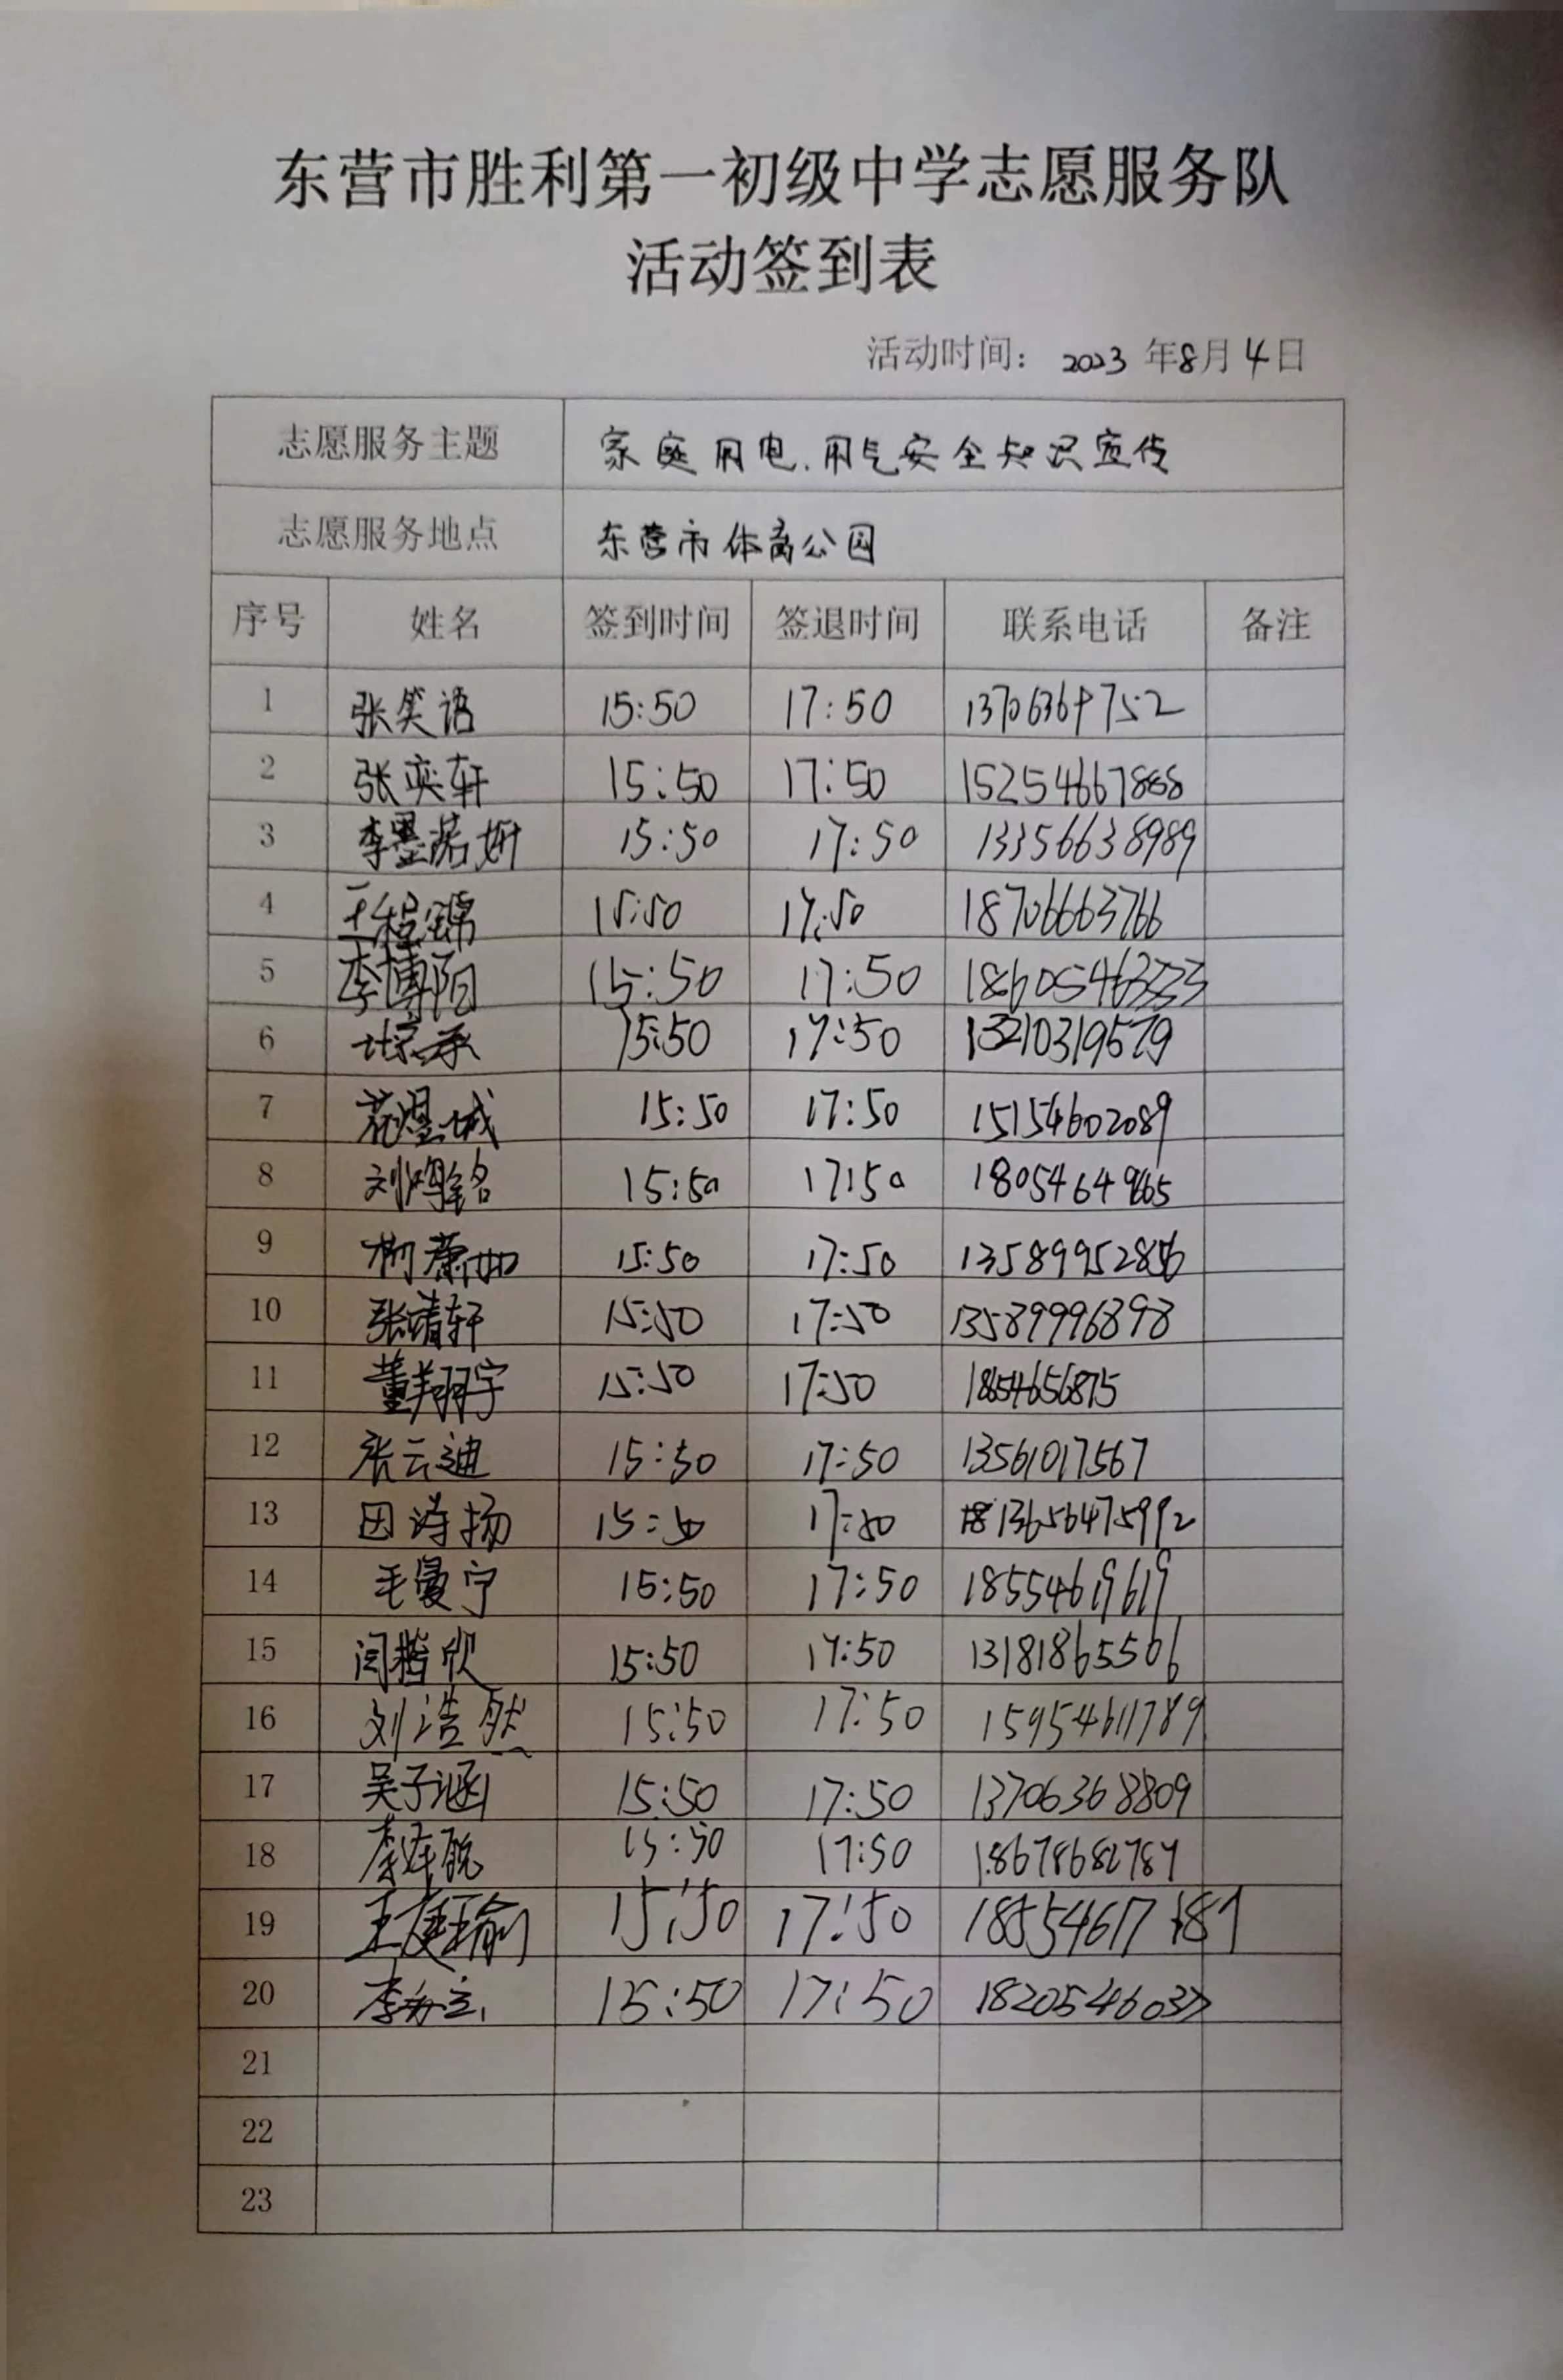 东营市胜利第一初级中学志愿服务队
活动签到表
活动时间： 2023 年8月4日
志愿服务主题 家庭用电、用气安全知识宣传
志愿服务地点 东营市体育公园
序号 姓名 签到时间 签退时间 联系电话 备注
1 张笑语 15:50 17:50
2 张奕轩 15:50 17:50 15254667868
3 李墨若妍 15:50 17:50 13356638989
4 15:50 17:50 18706663766
5 李博阳 15:50 17:50 18605463333
6 15:50 17:50 13210319579
7 范煜城 15:50 17:50 15154602089
8 刘鸿铭 15:50 17:50
9 15:50 17:50 13589952856
10 张靖轩 15:50 17:50 13589996898
11 董翔宇 15:50 17:50
12 张云迪 15:50 17:50 13561017567
13 田诗扬 15:50 17:50 13656475992
14 毛曼宁 15:50 17:50 18554619619
15 闫楷欣 15:50 17:50 13181865506
16 刘浩然 15:50 17:50 15954611789
17 吴子涵 15:50 17:50 13706368809
18 15:50 17:50 18678682789
19 王庭瑜 15:50 17:50
20 15:50 17:50
21
22
23